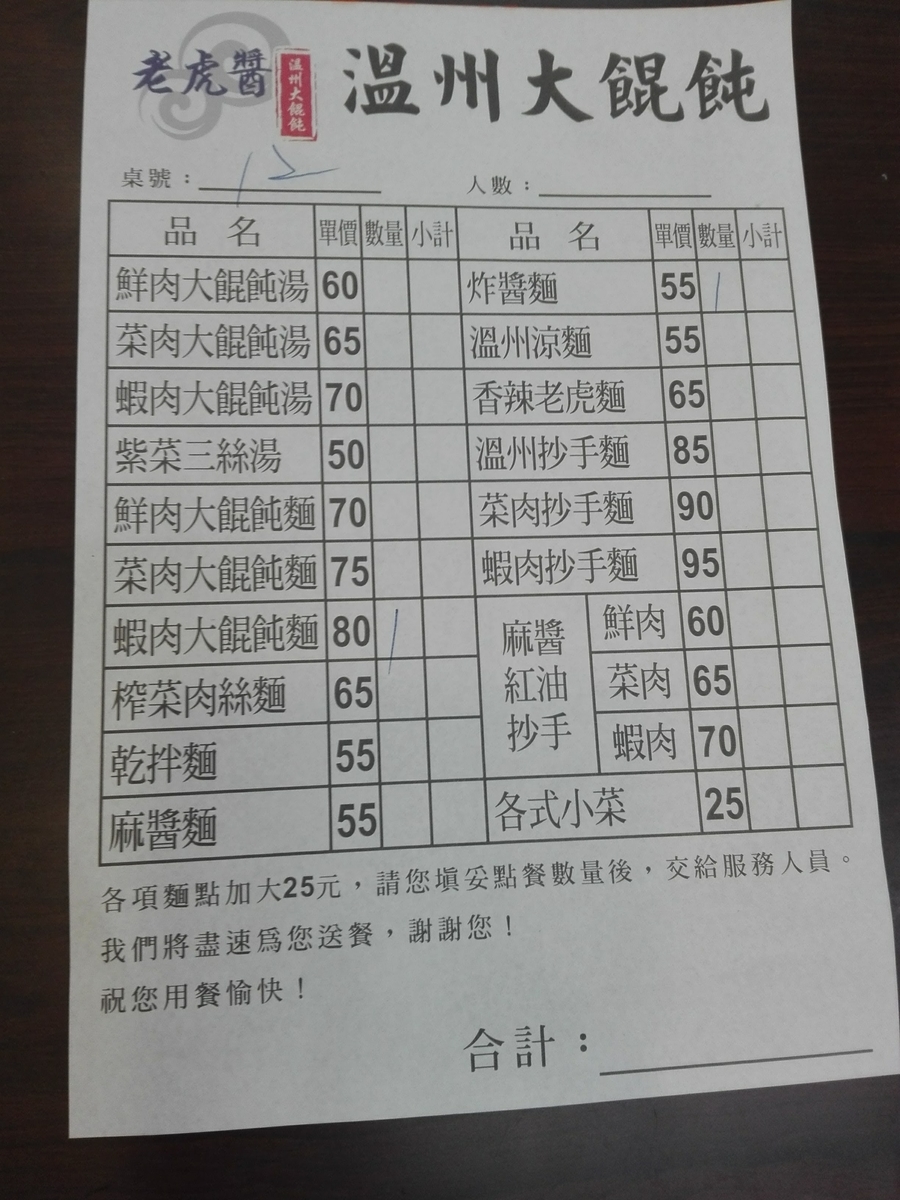 老虎醬
溫州大餛飩
溫州大餛飩
桌號：12
人數：
品名 單價 數量 小計 品名 單價 數量 小計
鮮肉大餛飩湯 60 炸醬麵 55 1
菜肉大餛飩湯 65 溫州涼麵 55
蝦肉大餛飩湯 70 香辣老虎麵 65
紫菜三絲湯 50 溫州抄手麵 85
鮮肉大餛飩麵 70 菜肉抄手麵 90
菜肉大餛飩麵 75 蝦肉抄手麵 95
蝦肉大餛飩麵 80 1 麻醬 鮮肉 60
榨菜肉絲麵 65 紅油 菜肉 65
乾拌麵 55 抄手 蝦肉 70
麻醬麵 55 各式小菜 25
各項麵點加大25元，請您填妥點餐數量後，交給服務人員。
我們將盡速為您送餐，謝謝您！
祝您用餐愉快！
合計：